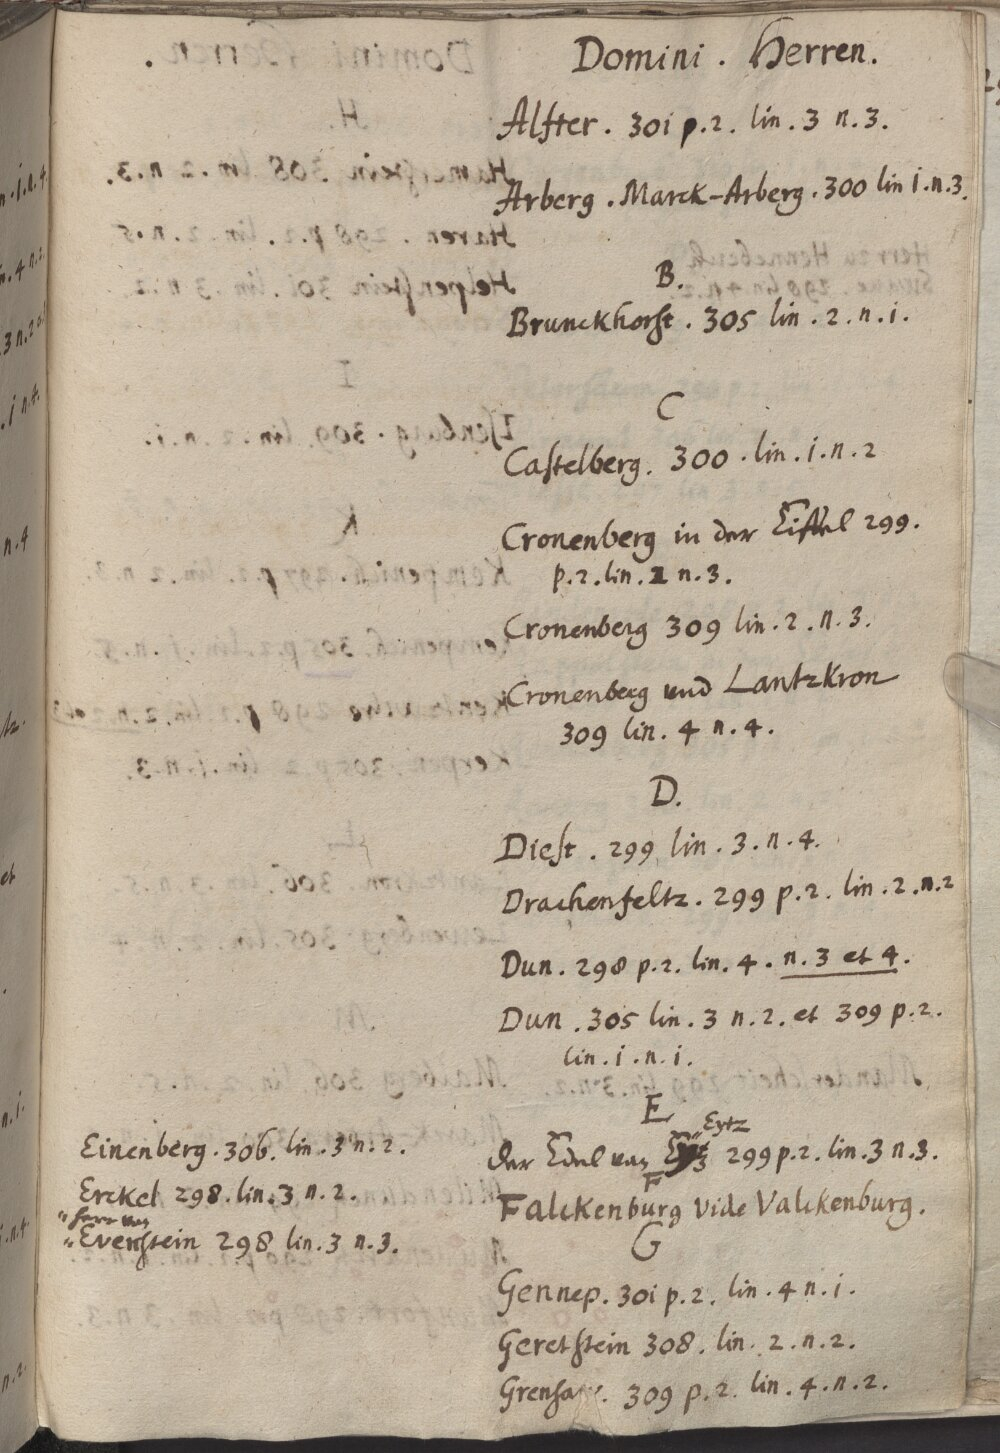 Domini . Herren.
Alfter . 301 p.2. lin . 3 n.3.
Arberg . Marck-Arberg . 300 lin i.n.3.
B.
Brunckhorst . 305 lin . 2 . n . i .
C
Castelberg . 300 . lin . i . n . 2
Cronenberg in der Eiffel 299.
p.2. lin . 2 n.3.
Cronenberg 309 lin . 2 . n . 3.
Cronenberg und Lantzkron
309 lin . 4 n . 4.
D.
Diest . 299 lin . 3 . n . 4.
Drachenfeltz . 299 p.2. lin . 2 . n . 2
Dun . 298 p.2. lin . 4 . n . 3 et 4 .
Dun . 305 lin . 3 n . 2 . et 309 p.2.
lin . i . n . i .
E
Eytz
der Edel van 299 p.2. lin . 3 n . 3.
Einenberg . 306. lin . 3 n . 2 .
Erckel 298 . lin . 3 n . 2 .
herr van
Evenstein 298 lin . 3 n . 3.
F
Falckenburg vide Valckenburg .
G
Gennep . 30i p.2. lin . 4 n . i .
Geretstein 308 . lin . 2 . n . 2 .
309 p.2. lin . 4 . n . 2 .